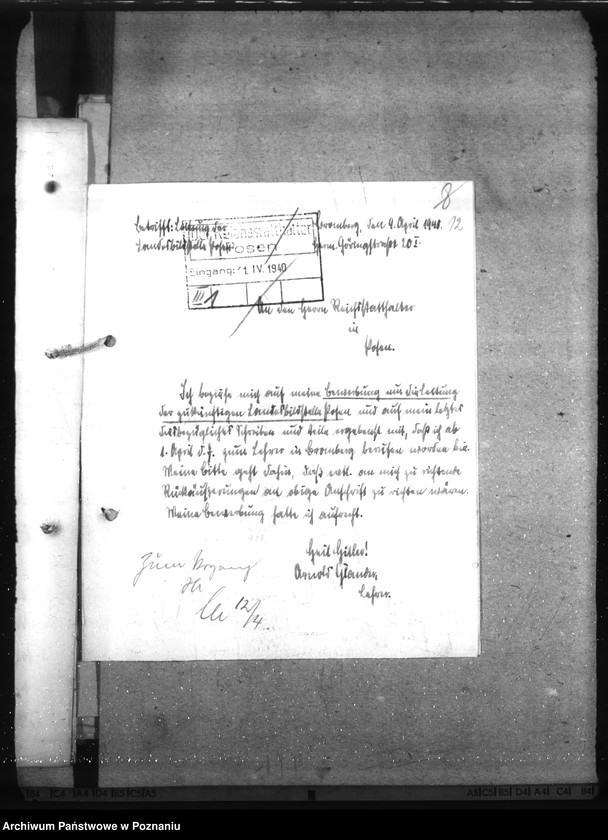 8
Betrifft: Leitung der
Landesbildstelle Posen
Reichsstatthalter
Posen
Eingang: 11. IV. 1940
III 1
Bromberg, den 9. April 1940. 12
Herm. Göringstraße 20 I.
An den Herrn Reichsstatthalter
in
Posen.
Ich beziehe mich auf meine Bewerbung um die Leitung
der zukünftigen Landesbildstelle Posen und auf mein letztes
diesbezügliches Schreiben und teile ergebenst mit, daß ich ab
1. April d. J. zum Lehrer in Bromberg berufen worden bin.
Meine Bitte geht dahin, daß evtl. an mich zu richtende
Rückäußerungen an obige Anschrift zu richten wären.
Meine Bewerbung halte ich aufrecht.
Heil Hitler!
Arnold
Lehrer.
Zum Vorgang
12/4
Archiwum Państwowe w Poznaniu